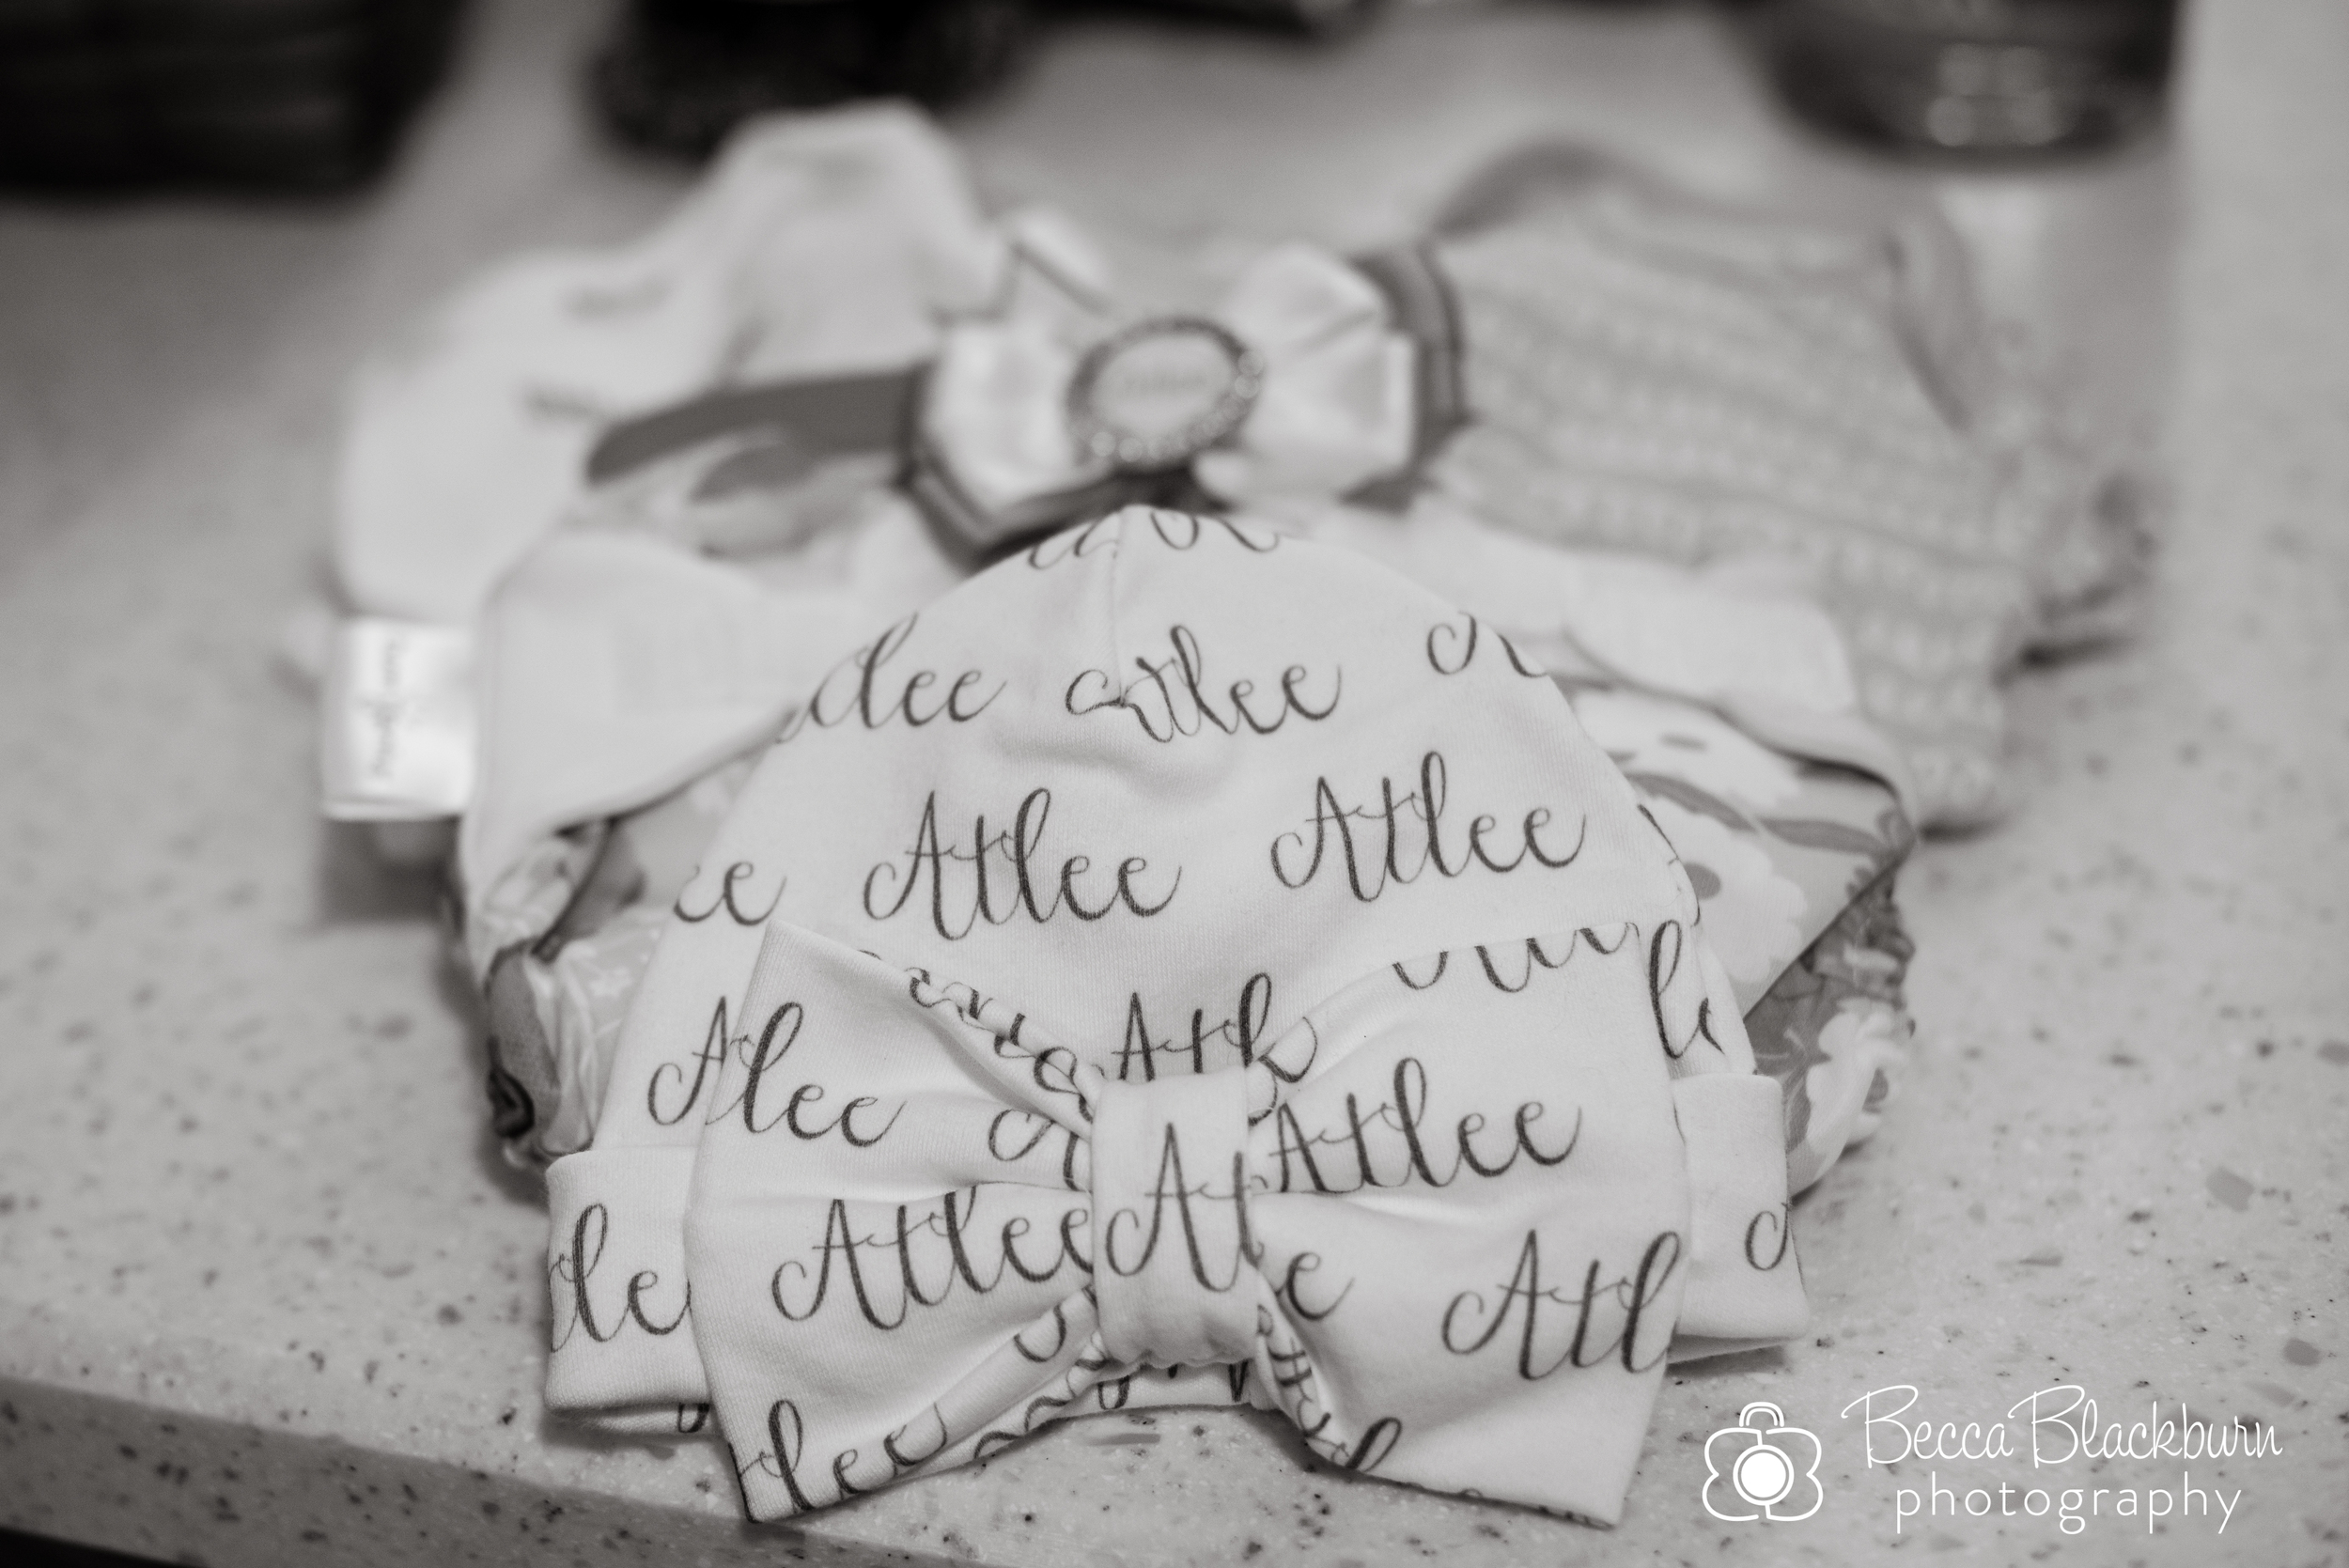 Atlee
Atlee Atlee
Alee Atlee
Atlee At Atl
lee
Becca Blackburn
photography